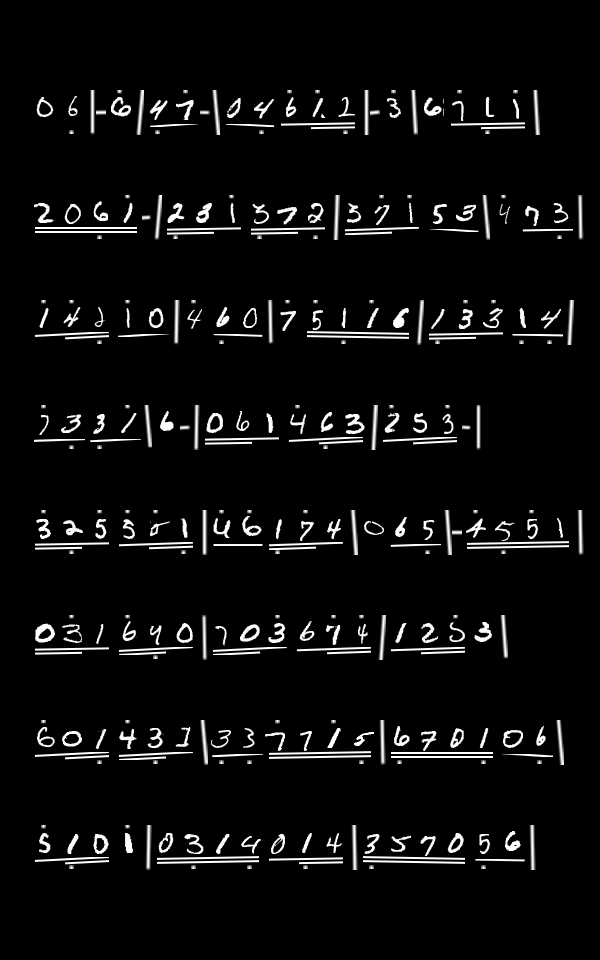 0 6 | - 6 | 4 7 - | 0 4 6 1 2 | - 3 | 6 7 1 1 |
2 0 6 1 - | 2 3 1 3 7 2 | 3 7 1 5 3 | 4 7 3 |
1 4 2 1 0 | 4 6 0 | 7 5 1 1 6 | 1 3 3 1 4 |
7 3 3 1 | 6 - | 0 6 1 4 6 3 | 2 5 3 - |
3 2 5 5 5 1 | 4 6 1 7 4 | 0 6 5 | - 4 5 5 1 |
0 3 1 6 4 0 | 7 0 3 6 7 4 | 1 2 5 3 |
6 0 1 4 3 1 | 3 3 7 7 1 5 | 6 7 0 1 0 6 |
5 1 0 1 | 0 3 1 4 0 1 4 | 3 5 7 0 5 6 |